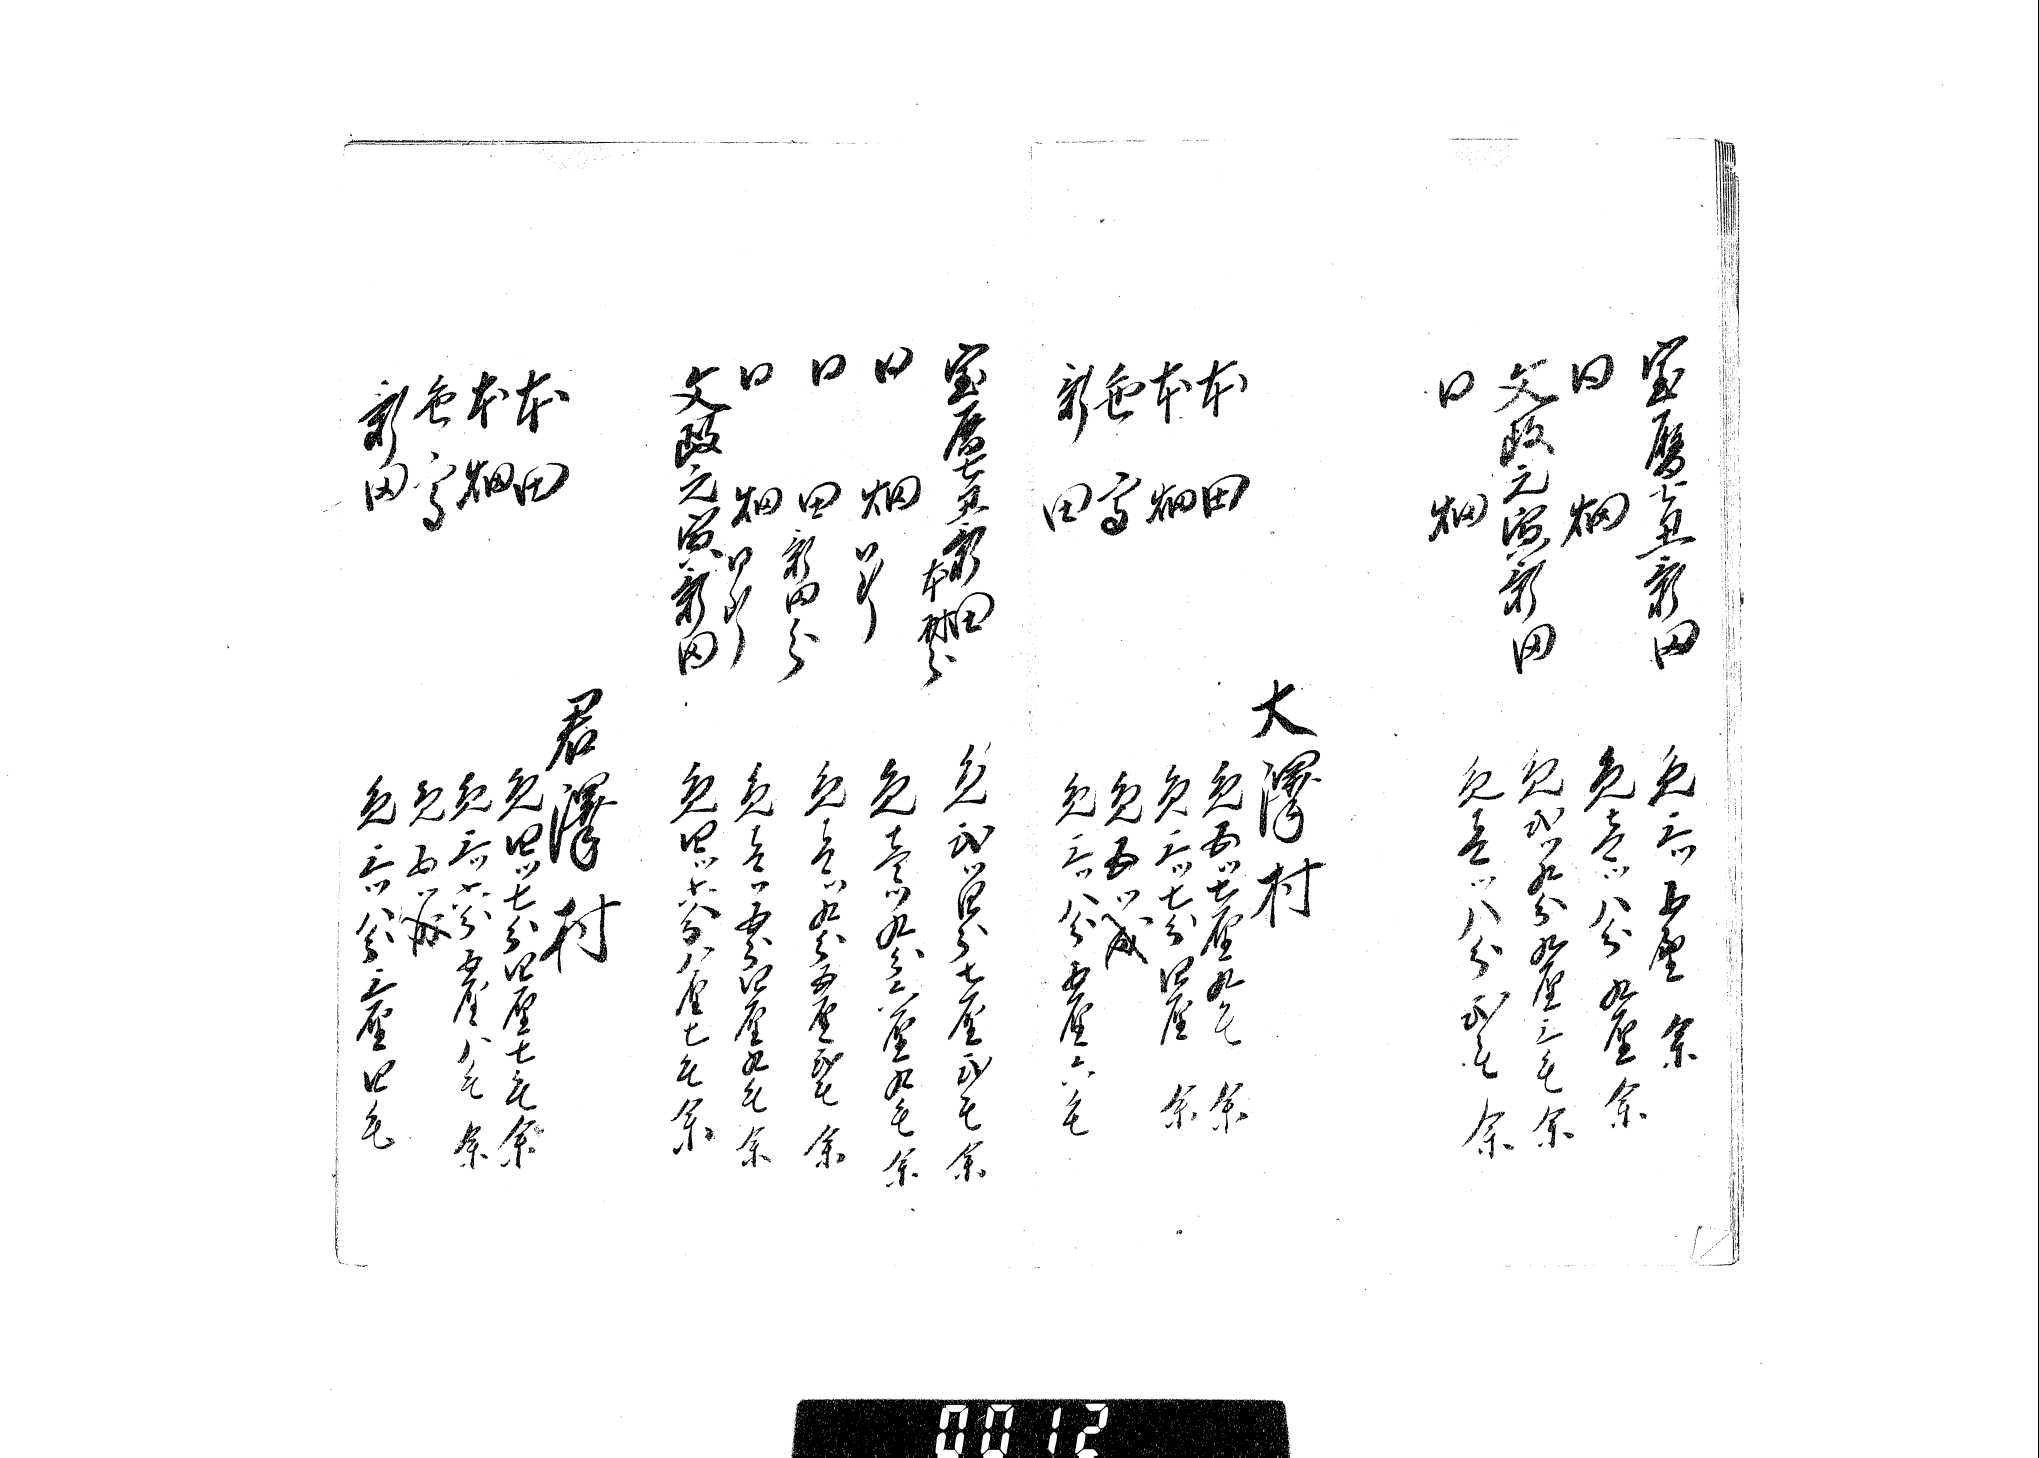 宝暦七丑新田 免三ツ五厘余
同 畑 免壱ツ八分九厘余
文政元寅新田 免弐ツ九分九厘三毛余
同 畑 免壱ツ八分弐毛余
大澤村
本田 免五ツ七厘九毛余
本畑 免三ツ七分四厘余
色高 免五ツ成
新田 免三ツ八分五厘六毛
宝暦七丑新田 本村分 免弐ツ四分七厘弐毛余
同 畑 同断 免壱ツ九分六厘九毛余
同 田 新田分 免壱ツ九分五厘弐毛余
同 畑 同断 免壱ツ五分四厘九毛余
文政元寅新田 免四ツ六分八厘七毛余
君澤村
本田 免四ツ七分四厘七毛余
本畑 免三ツ六分五厘八毛余
色高 免五ツ成
新田 免三ツ八分三厘四毛
0012